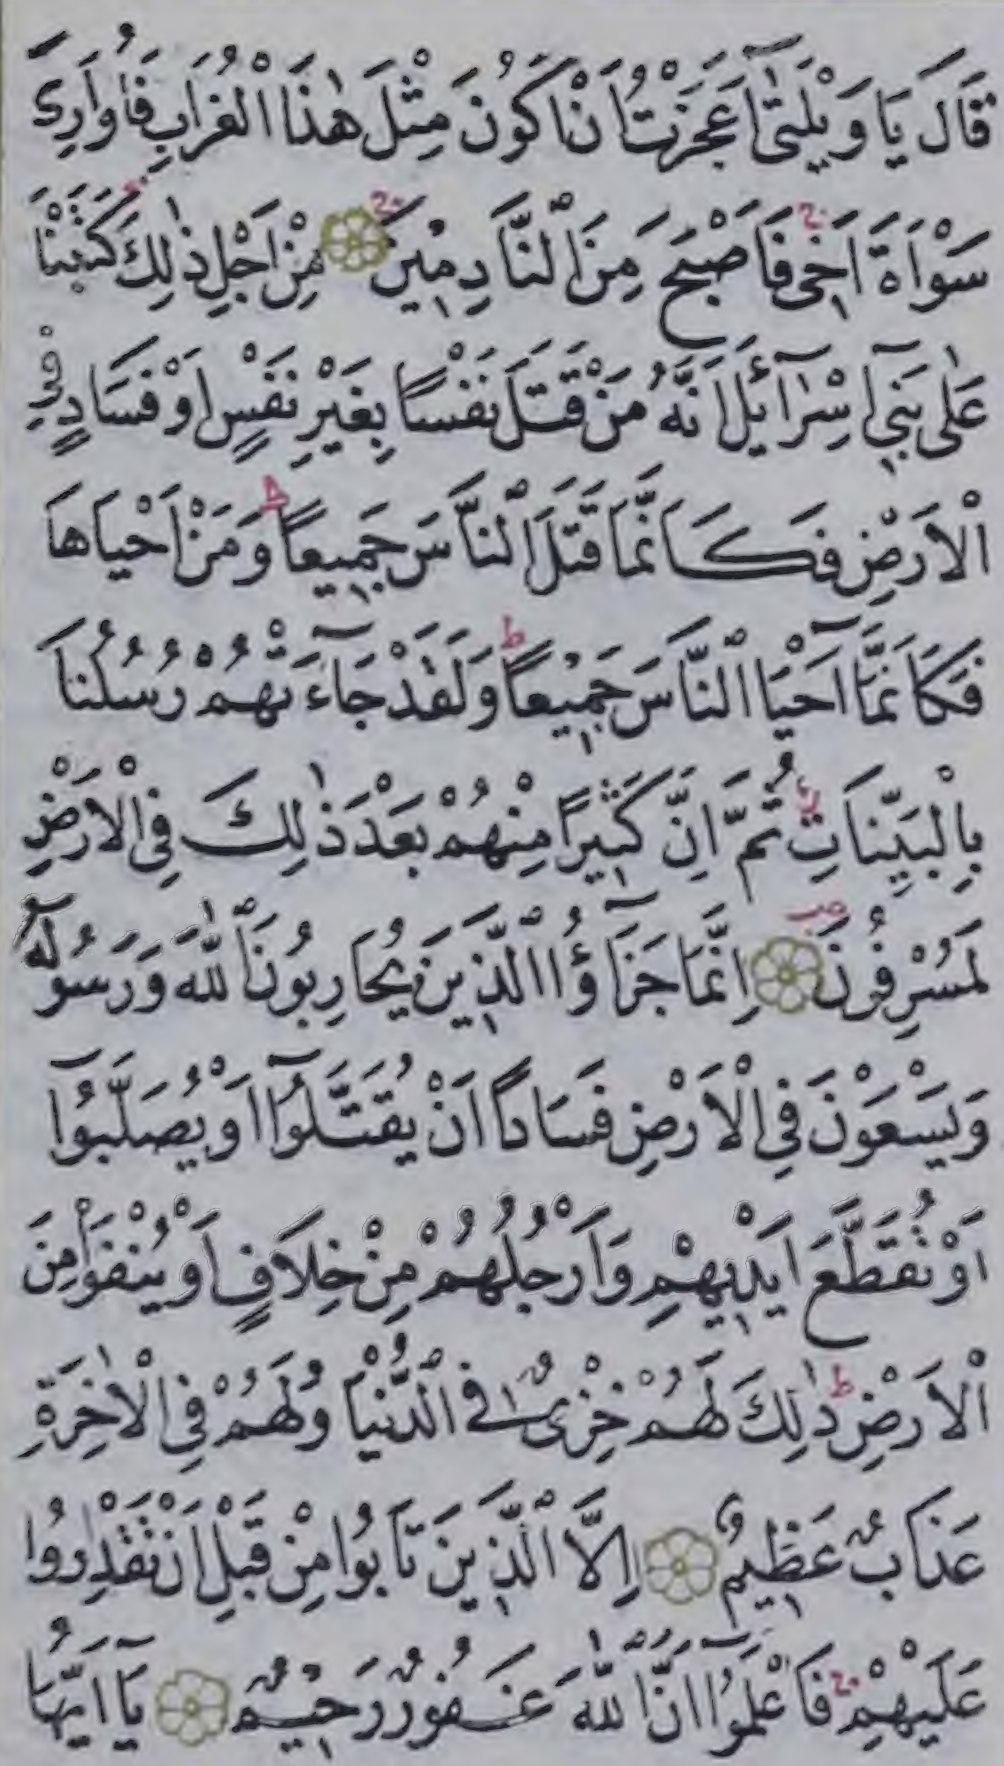 قَالَ يَا وَيْلَتٰٓى اَعَجَزْتُ اَنْ اَكُونَ مِثْلَ هٰذَا الْغُرَابِ فَاُوَارِىَ
سَوْاَةَ اَخٖى فَاَصْبَحَ مِنَ النَّادِمٖينَ مِنْ اَجْلِ ذٰلِكَ كَتَبْنَا
عَلٰى بَنٖٓى اِسْرَٓائٖلَ اَنَّهُ مَنْ قَتَلَ نَفْسًا بِغَيْرِ نَفْسٍ اَوْ فَسَادٍ فِى
الْاَرْضِ فَكَاَنَّمَا قَتَلَ النَّاسَ جَمٖيعًا وَمَنْ اَحْيَاهَا
فَكَاَنَّمَٓا اَحْيَا النَّاسَ جَمٖيعًا وَلَقَدْ جَٓاءَتْهُمْ رُسُلُنَا
بِالْبَيِّنَاتِ ثُمَّ اِنَّ كَثٖيرًا مِنْهُمْ بَعْدَ ذٰلِكَ فِى الْاَرْضِ
لَمُسْرِفُونَ اِنَّمَا جَزَٓاؤُا الَّذٖينَ يُحَارِبُونَ اللّٰهَ وَرَسُولَهُ
وَيَسْعَوْنَ فِى الْاَرْضِ فَسَادًا اَنْ يُقَتَّلُٓوا اَوْ يُصَلَّبُٓوا
اَوْ تُقَطَّعَ اَيْدٖيهِمْ وَاَرْجُلُهُمْ مِنْ خِلَافٍ اَوْ يُنْفَوْا مِنَ
الْاَرْضِ ذٰلِكَ لَهُمْ خِزْىٌ فِى الدُّنْيَا وَلَهُمْ فِى الْاٰخِرَةِ
عَذَابٌ عَظٖيمٌ اِلَّا الَّذٖينَ تَابُوا مِنْ قَبْلِ اَنْ تَقْدِرُوا
عَلَيْهِمْ فَاعْلَمُٓوا اَنَّ اللّٰهَ غَفُورٌ رَحٖيمٌ يَٓا اَيُّهَا